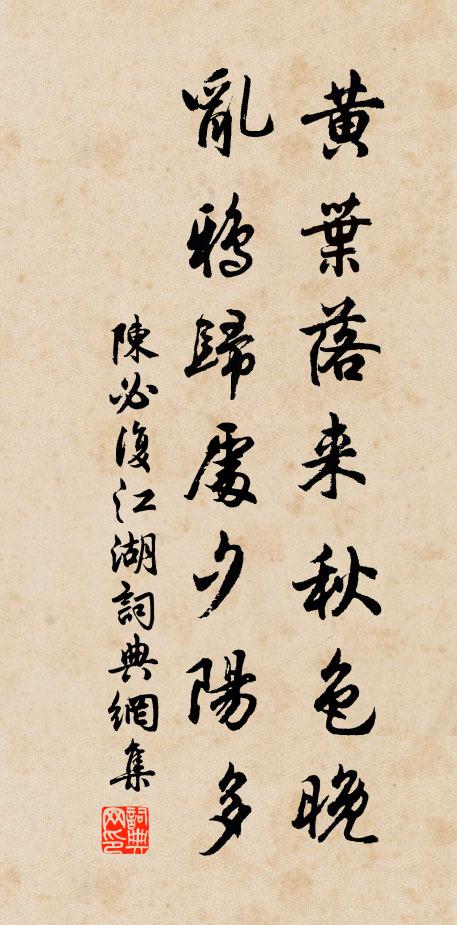 黄葉落来秋色晚
亂鴉歸處夕陽多
陳必復江湖詞典網集
詞典網印